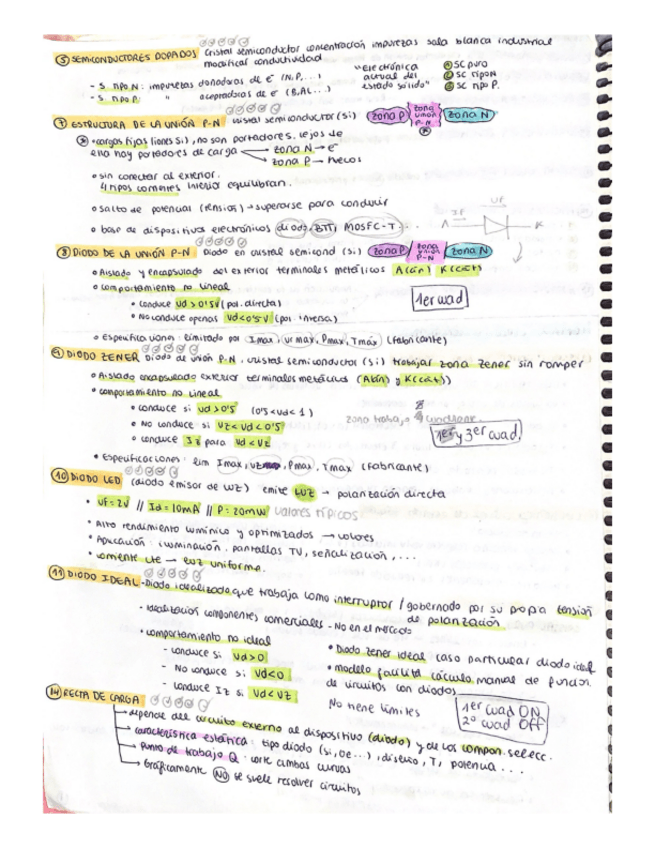 ⑤ SEMICONDUCTORES DOPADOS Cristal semiconductor concentración impurezas sala blanca industrial
modificar conductividad
- S. TIPO N: impurezas donadoras de e⁻ (N, P, ...)
- S. TIPO P: " aceptadoras de e⁻ (B, AL...)
"electrónica
actual del
estado sólido"
SC puro
SC tipo N
SC tipo P.
⑦ ESTRUCTURA DE LA UNIÓN P-N cristal semiconductor (si) zona P zona unión P-N zona N
• cargas fijas (iones si), no son portadores. Lejos de
ella hay portadores de carga zona N → e⁻
zona P → huecos
• sin conectar al exterior.
4 tipos corrientes interior equilibran.
• salto de potencial (tensión) → superarse para conducir
• base de dispositivos electrónicos diodo, BJT, MOSFC-T...
IF UF
A K
⑧ DIODO DE LA UNIÓN P-N Diodo en cristal semicond (si) zona P zona unión P-N zona N
• Aislado y encapsulado del exterior terminales metálicos A(án) K(cát)
• comportamiento no lineal
1er cuad
• conduce Ud > 0'5V (pol. directa)
• No conduce apenas Ud < 0'5V (pol. inversa)
• Especificaciones: limitado por Imax, Ur max, Pmax, Tmáx (fabricante)
⑨ DIODO ZENER Diodo de unión P-N, cristal semiconductor (si) trabajar zona Zener sin romper
• Aislado encapsulado exterior terminales metálicos (A(án) y K(cát))
• comportamiento no lineal
• conduce si Ud > 0'5 (0'5 < Ud < 1)
• No conduce si Uz < Ud < 0'5
• conduce Iz para Ud < Uz
zona trabajo
1er y 3er cuad.
• Especificaciones: lim Imax, Uz, Pmax, Tmax (Fabricante)
⑩ DIODO LED (diodo emisor de luz) emite LUZ → polarización directa
• UF = 2V // Id = 10mA // P = 20mW valores típicos
• Alto rendimiento lumínico y optimizados → colores
• Aplicación: iluminación, pantallas TV, señalización, ...
• corriente cte → luz uniforme.
⑪ DIODO IDEAL - Diodo idealizado que trabaja como interruptor / gobernado por su propia tensión
de polarización.
- Idealización componentes comerciales - No en el mercado
• comportamiento no ideal
- conduce si Ud > 0
- No conduce si Ud < 0
- conduce Iz si Ud < Uz
• Diodo zener ideal caso particular diodo ideal
• modelo facilita cálculo manual de funcion.
de circuitos con diodos
No tiene límites
1er cuad ON
2º cuad OFF
⑭ RECTA DE CARGA
depende del circuito externo al dispositivo (diodo) y de los compon. selecc.
característica estática: tipo diodo (Si, Ge...), diseño, T, potencia...
Punto de trabajo Q - corte ambas curvas
Gráficamente NO se suele resolver circuitos